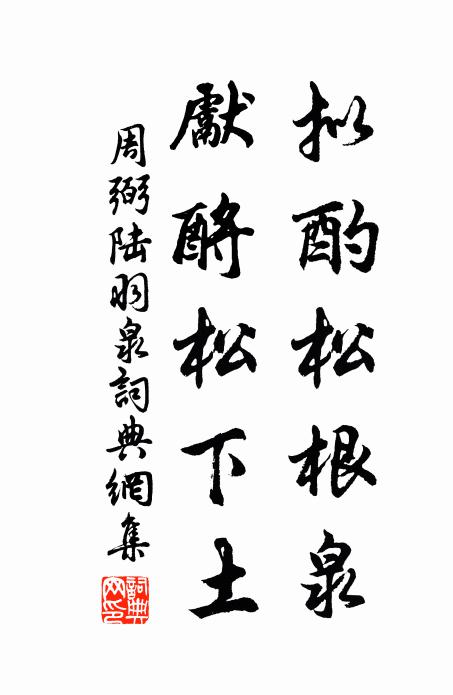 拟酌松根泉
獻酹松下土
周弼陆羽泉詞典網集
詞典網印